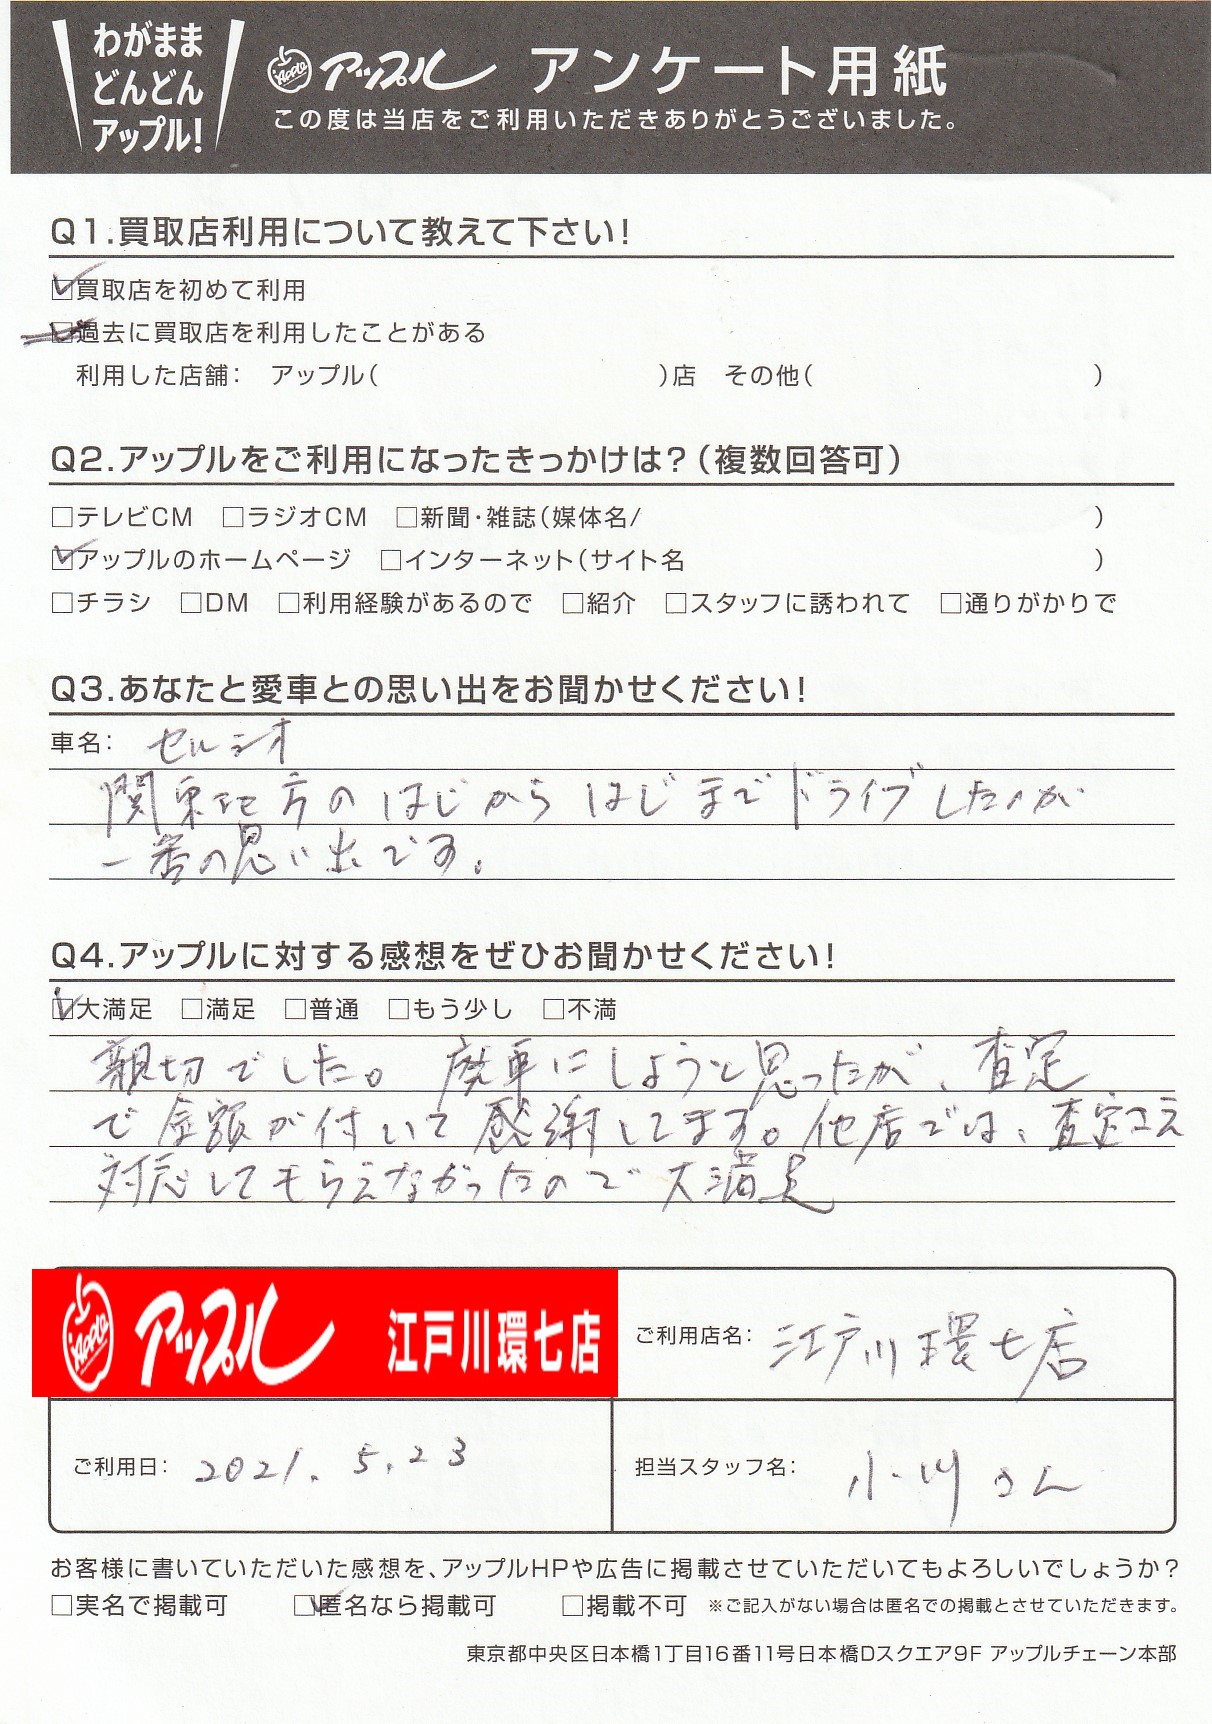 わがまま
どんどん
アップル!
Apple アップル アンケート用紙
この度は当店をご利用いただきありがとうございました。
Q1.買取店利用について教えて下さい!
☑買取店を初めて利用
☑過去に買取店を利用したことがある
利用した店舗: アップル( )店 その他( )
Q2.アップルをご利用になったきっかけは?(複数回答可)
□テレビCM □ラジオCM □新聞・雑誌(媒体名/ )
☑アップルのホームページ □インターネット(サイト名 )
□チラシ □DM □利用経験があるので □紹介 □スタッフに誘われて □通りがかりで
Q3.あなたと愛車との思い出をお聞かせください!
車名: セルシオ
関東地方のはじからはじまでドライブしたのが
一番の思い出です。
Q4.アップルに対する感想をぜひお聞かせください!
☑大満足 □満足 □普通 □もう少し □不満
親切でした。廃車にしようと思ったが、査定
で金額が付いて感謝してます。他店では、査定さえ
対応してもらえなかったので大満足
Apple アップル 江戸川環七店
ご利用店名: 江戸川環七店
ご利用日: 2021.5.23
担当スタッフ名: 小川さん
お客様に書いていただいた感想を、アップルHPや広告に掲載させていただいてもよろしいでしょうか?
□実名で掲載可 ☑匿名なら掲載可 □掲載不可 ※ご記入がない場合は匿名での掲載とさせていただきます。
東京都中央区日本橋1丁目16番11号日本橋Dスクエア9F アップルチェーン本部